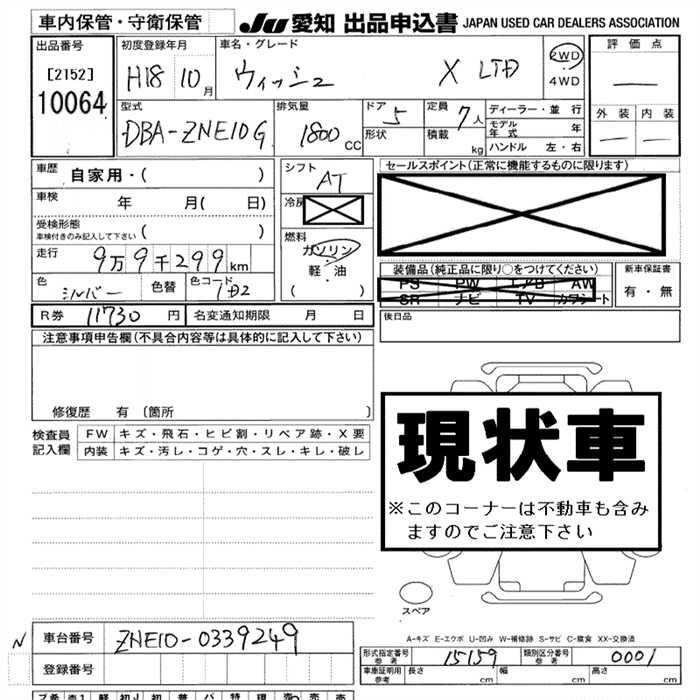 車内保管・守衛保管
JU 愛知 出品申込書 JAPAN USED CAR DEALERS ASSOCIATION
出品番号 初度登録年月 車名・グレード 評価点
[2152] H18 10月 ウィッシュ X LTD 2WD
10064 4WD
型式 排気量 ドア 5 定員 7人 ディーラー・並行 外装 内装
DBA-ZNE10G 1800cc 形状 積載 kg モデル年式 年
ハンドル 左・右
車歴 自家用・( ) シフト AT セールスポイント(正常に機能するものに限ります)
車検 年 月( 日) 冷房
受検形態
車検付きのみ記入して下さい ( ) 燃料
走行 9万9千299km ガソリン
軽・油
( )
色 シルバー 色替 色コード 1D2 装備品(純正品に限り○をつけてください) 新車保証書
PS PW エアB AW 有・無
SR ナビ TV カワシート
R券 11730円 名変通知期限 月 日 後日品
注意事項申告欄(不具合内容等は具体的に記入して下さい)
修復歴 有 [箇所 ]
検査員 FW キズ・飛石・ヒビ割・リペア跡・X要
記入欄 内装 キズ・汚レ・コゲ・穴・スレ・キレ・破レ
現状車
※このコーナーは不動車も含み
ますのでご注意下さい
スペア
A-キズ E-エクボ U-凹み W-補修跡 S-サビ C-腐食 XX-交換済
N 車台番号 ZNE10-0339249
登録番号
形式指定番号 参考 15159 類別区分番号 参考 0001
車庫証明用 参考 長さ cm 幅 cm 高さ cm